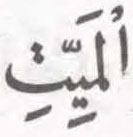 الْمَيِّتِ